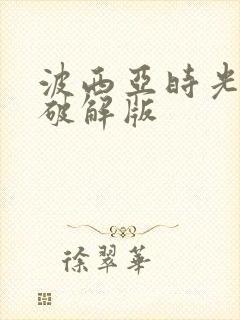 波西亞時光
破解版
徐翠華